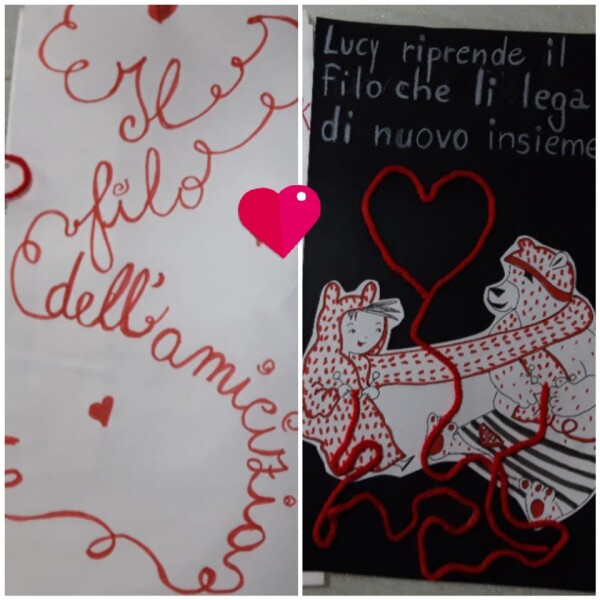 Il
filo
dell'
amicizia
Lucy riprende il
filo che li lega
di nuovo insieme